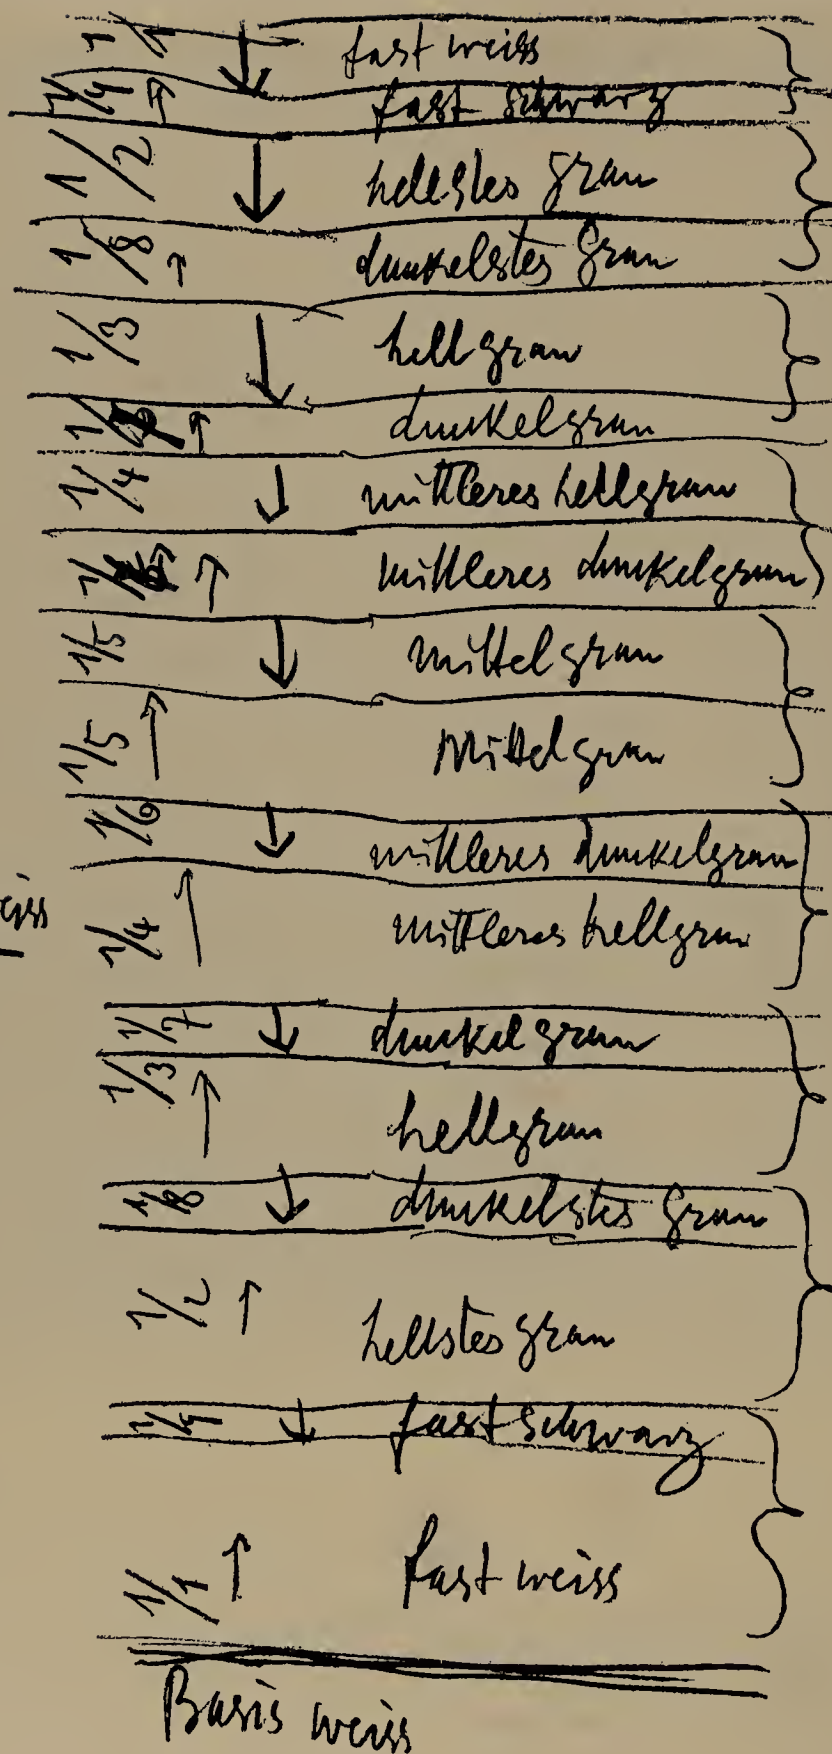 1/1 fast weiss
1/9 fast schwarz
1/2 hellstes grau
1/8 dunkelstes Grau
1/3 hellgrau
1/ dunkelgrau
1/4 mittleres hellgrau
1/ mittleres dunkelgrau
1/5 mittelgrau
1/5 Mittelgrau
1/6 mittleres dunkelgrau
1/4 mittleres hellgrau
1/7 dunkelgrau
1/3 hellgrau
1/8 dunkelstes Grau
1/2 hellstes grau
1/9 fast schwarz
1/1 fast weiss
Basis weiss